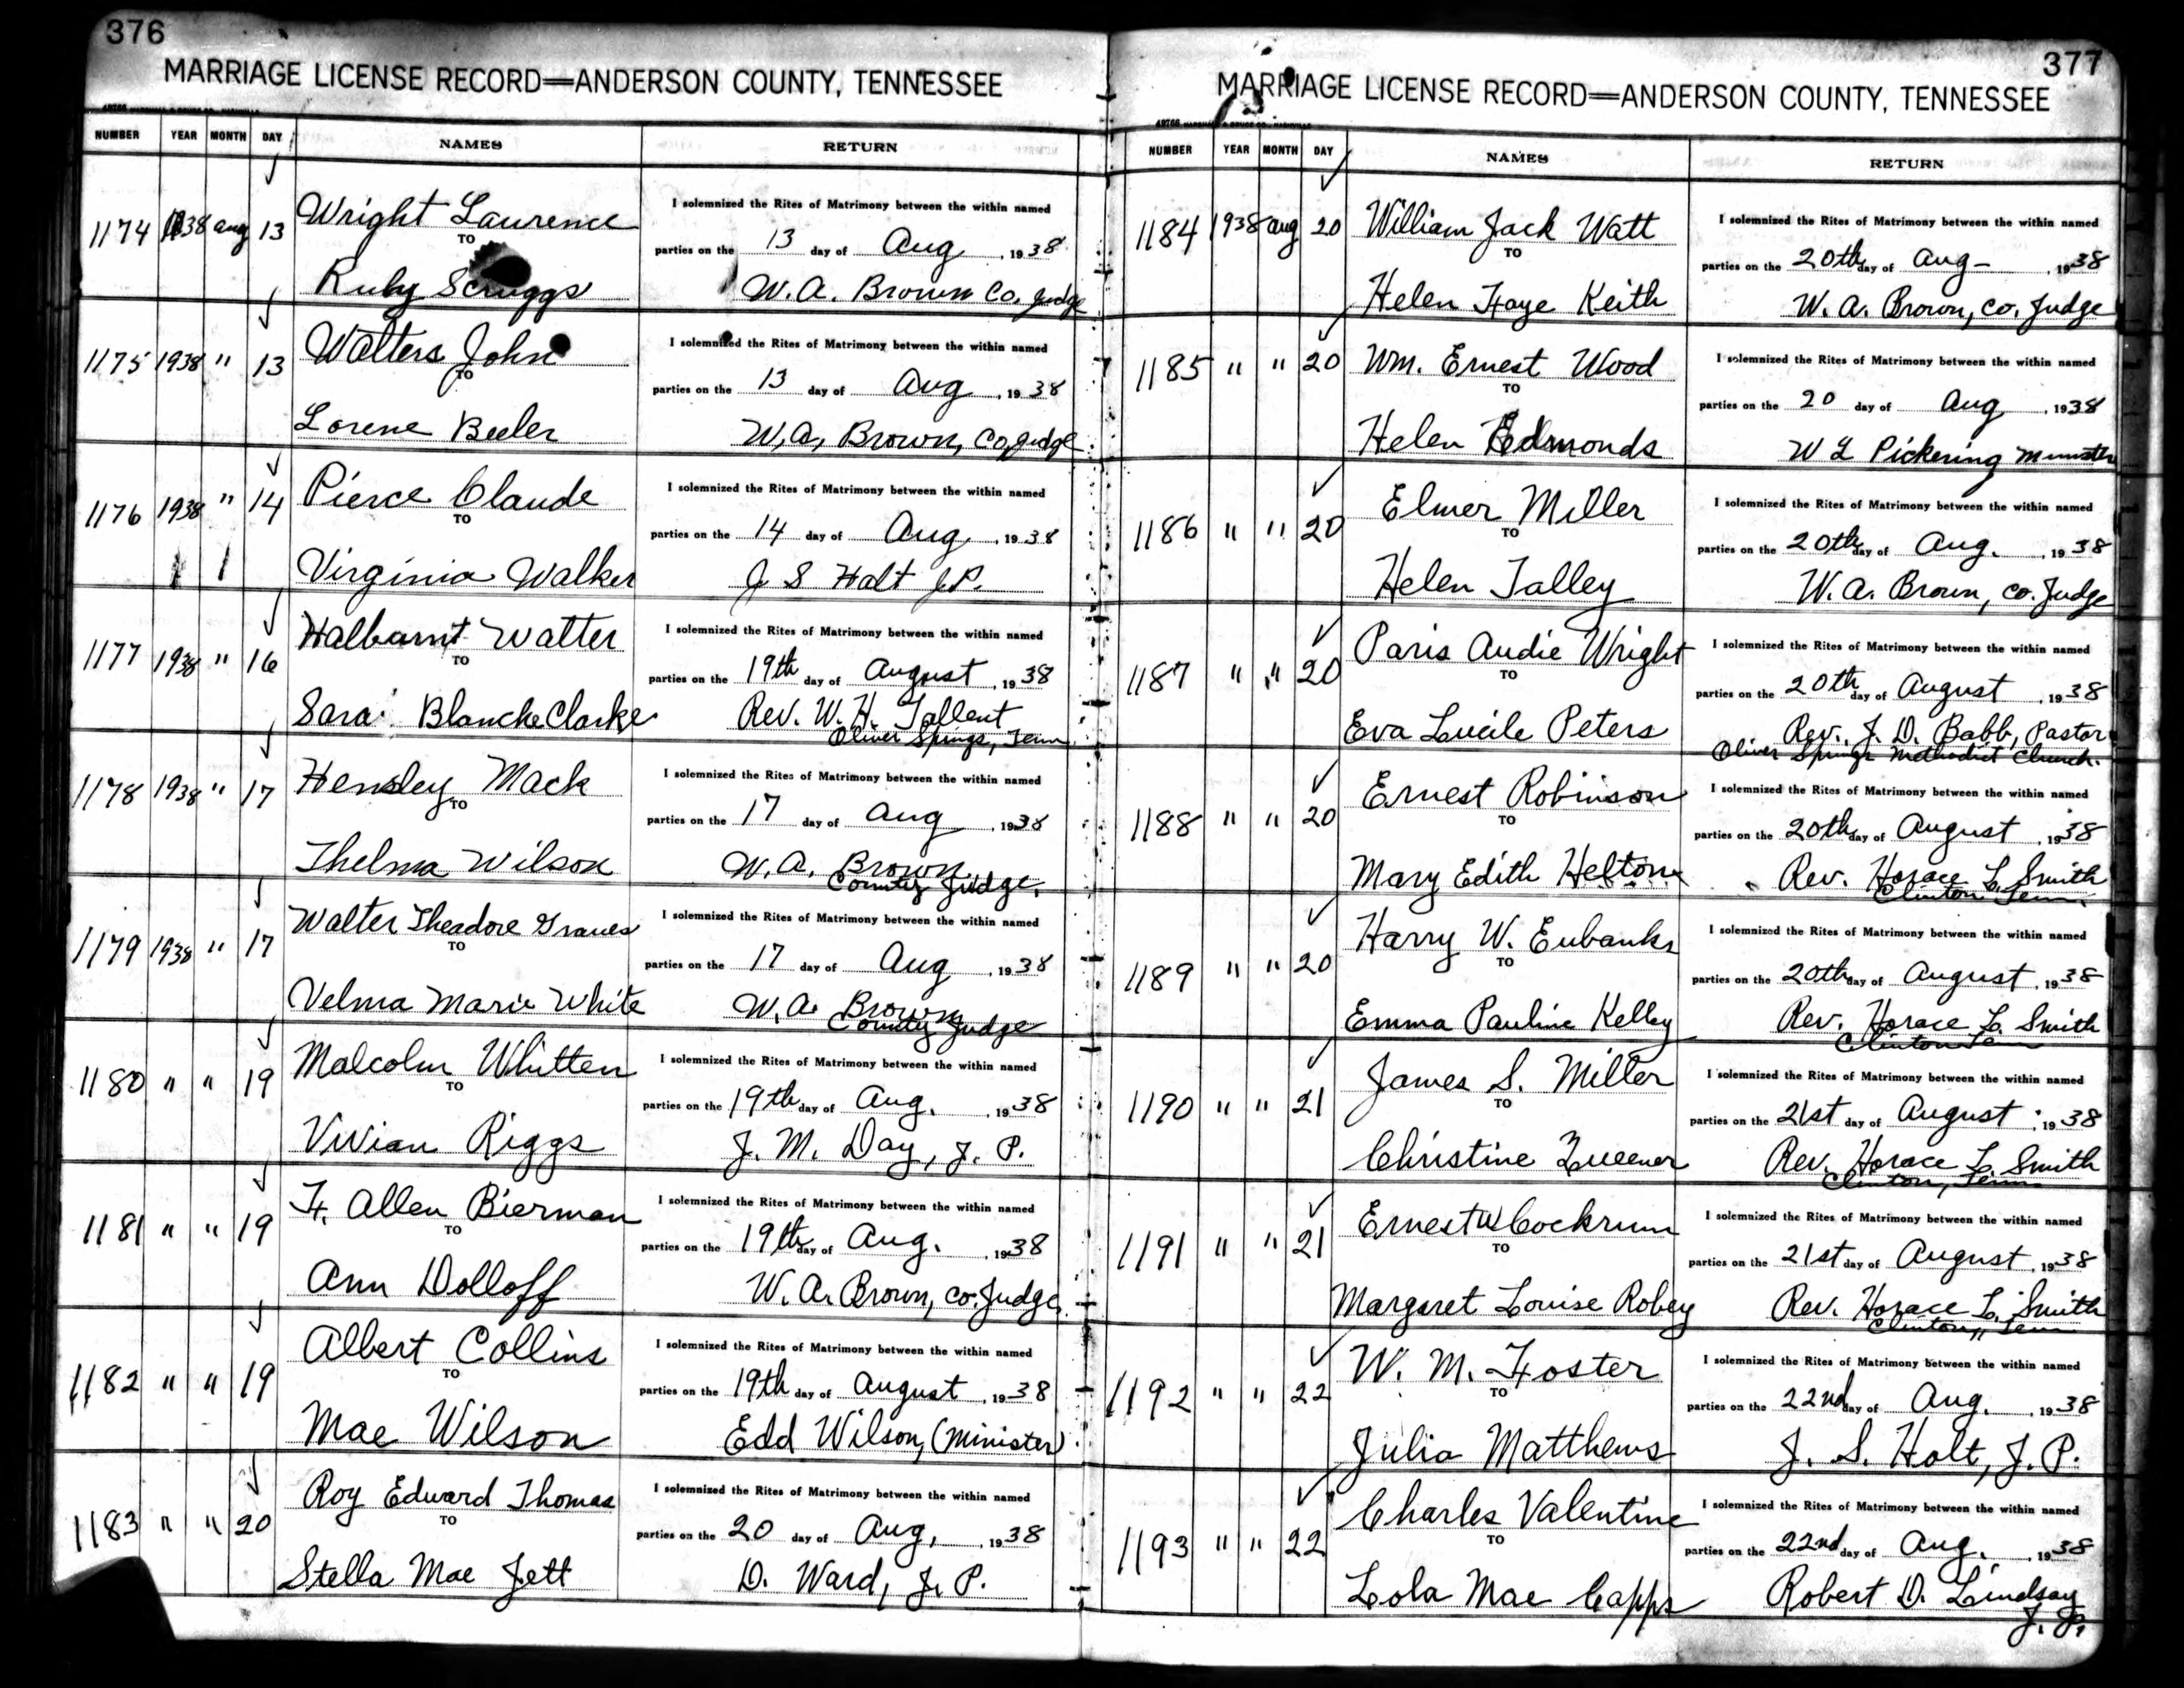 376
MARRIAGE LICENSE RECORD—ANDERSON COUNTY, TENNESSEE
NUMBER YEAR MONTH DAY NAMES RETURN
1174 1938 aug 13 Wright Laurence
TO
Ruby Scruggs
I solemnized the Rites of Matrimony between the within named
parties on the 13 day of Aug, 1938
W. A. Brown Co. Judge
1175 1938 " 13 Walters John
TO
Lorene Beeler
I solemnized the Rites of Matrimony between the within named
parties on the 13 day of Aug, 1938
W. A. Brown, Co, Judge
1176 1938 " 14 Pierce Claude
TO
Virginia Walker
I solemnized the Rites of Matrimony between the within named
parties on the 14 day of Aug, 1938
J S Holt J.P.
1177 1938 " 16 Halbarnt Walter
TO
Sara Blanche Clarke
I solemnized the Rites of Matrimony between the within named
parties on the 19th day of August, 1938
Rev. W. H. Tallent
Oliver Springs, Tenn
1178 1938 " 17 Hensley Mack
TO
Thelma Wilson
I solemnized the Rites of Matrimony between the within named
parties on the 17 day of Aug, 1938
W. A. Brown
County Judge.
1179 1938 " 17 Walter Theadore Graves
TO
Velma Marie White
I solemnized the Rites of Matrimony between the within named
parties on the 17 day of Aug, 1938
W. A. Brown
County Judge
1180 " " 19 Malcolm Whitten
TO
Vivian Riggs
I solemnized the Rites of Matrimony between the within named
parties on the 19th day of Aug., 1938
J. M. Day, J. P.
1181 " " 19 F. Allen Bierman
TO
Ann Dolloff
I solemnized the Rites of Matrimony between the within named
parties on the 19th day of Aug., 1938
W. A. Brown, Co. Judge
1182 " " 19 Albert Collins
TO
Mae Wilson
I solemnized the Rites of Matrimony between the within named
parties on the 19th day of August, 1938
Edd Wilson, (Minister)
1183 " " 20 Roy Edward Thomas
TO
Stella Mae Jett
I solemnized the Rites of Matrimony between the within named
parties on the 20 day of Aug., 1938
D. Ward, J. P.
377
MARRIAGE LICENSE RECORD—ANDERSON COUNTY, TENNESSEE
NUMBER YEAR MONTH DAY NAMES RETURN
1184 1938 aug 20 William Jack Watt
TO
Helen Faye Keith
I solemnized the Rites of Matrimony between the within named
parties on the 20th day of Aug-, 1938
W. A. Brown, Co. Judge
1185 " " 20 Wm. Ernest Wood
TO
Helen Edmonds
I solemnized the Rites of Matrimony between the within named
parties on the 20 day of Aug, 1938
W L Pickering Minister
1186 " " 20 Elmer Miller
TO
Helen Talley
I solemnized the Rites of Matrimony between the within named
parties on the 20th day of Aug., 1938
W. A. Brown, Co. Judge
1187 " " 20 Paris Audie Wright
TO
Eva Lucile Peters
I solemnized the Rites of Matrimony between the within named
parties on the 20th day of August, 1938
Rev. J. D. Babb, Pastor
Oliver Springs Methodist Church.
1188 " " 20 Ernest Robinson
TO
Mary Edith Helton
I solemnized the Rites of Matrimony between the within named
parties on the 20th day of August, 1938
Rev. Horace L. Smith
Clinton Tenn.
1189 " " 20 Harry W. Eubanks
TO
Emma Pauline Kelley
I solemnized the Rites of Matrimony between the within named
parties on the 20th day of August, 1938
Rev. Horace L. Smith
Clinton Tenn
1190 " " 21 James S. Miller
TO
Christine Zueener
I solemnized the Rites of Matrimony between the within named
parties on the 21st day of August, 1938
Rev. Horace L. Smith
Clinton, Tenn.
1191 " " 21 Ernest W Cockrum
TO
Margaret Louise Robey
I solemnized the Rites of Matrimony between the within named
parties on the 21st day of August, 1938
Rev. Horace L. Smith
Clinton, Tenn
1192 " " 22 W. M. Foster
TO
Julia Matthews
I solemnized the Rites of Matrimony between the within named
parties on the 22nd day of Aug., 1938
J. S. Holt, J. P.
1193 " " 22 Charles Valentine
TO
Lola Mae Capps
I solemnized the Rites of Matrimony between the within named
parties on the 22nd day of Aug., 1938
Robert D. Lindsay
J. P.